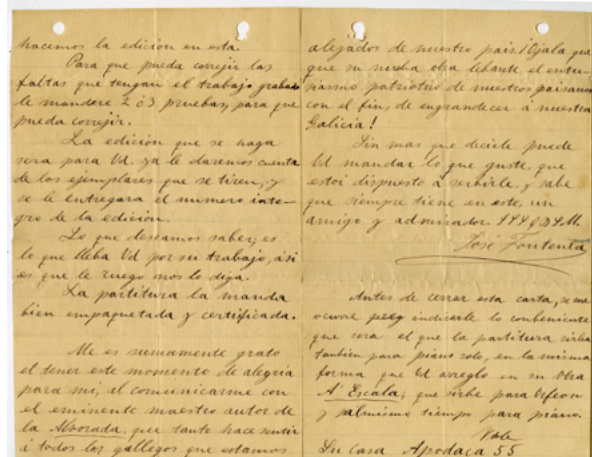 hacemos la edición en esta.
Para que pueda correjir las
faltas que tengan el trabajo grabado
le mandere 2 ó 3 pruebas, para que
pueda correjir.
La edición que se haga
sera para Vd. ya le daremos cuenta
de los ejemplares que se tiren, y
se le entregara el numero inte-
gro de la edición.
Lo que deseamos saber, es
lo que lleba Vd por su trabajo, ási
es que le ruego nos lo diga.
La partitura la manda
bien empaquetada y certificada.
Me es sumamente grato
el tener este momento de alegria
para mi, al comunicarme con
el eminente maestro autor de
la Alvorada, que tanto hace sentir
á todos los gallegos que estamos
alejados de nuestro pais. ¡Ojala que
que su nueba obra lebante el entu-
siasmo patriotico de nuestros paisanos
con el fin de engrandecer á nuestra
Galicia!
Sin mas que decirle puede
Vd mandar lo que guste, que
estoi dispuesto á serbirle y sabe
que siempre tiene en este, un
amigo y admirador.
José Fontenla
Antes de cerrar esta carta, se me
ocurre indicarle lo conbeniente
que sera el que la partitura sirba
tanbien para piano solo, en la misma
forma que Vd arreglo en su obra
A' Escala; que sirbe para Orfeon
y al mismo tiempo para piano.
Vale
Su casa Apodaca 55